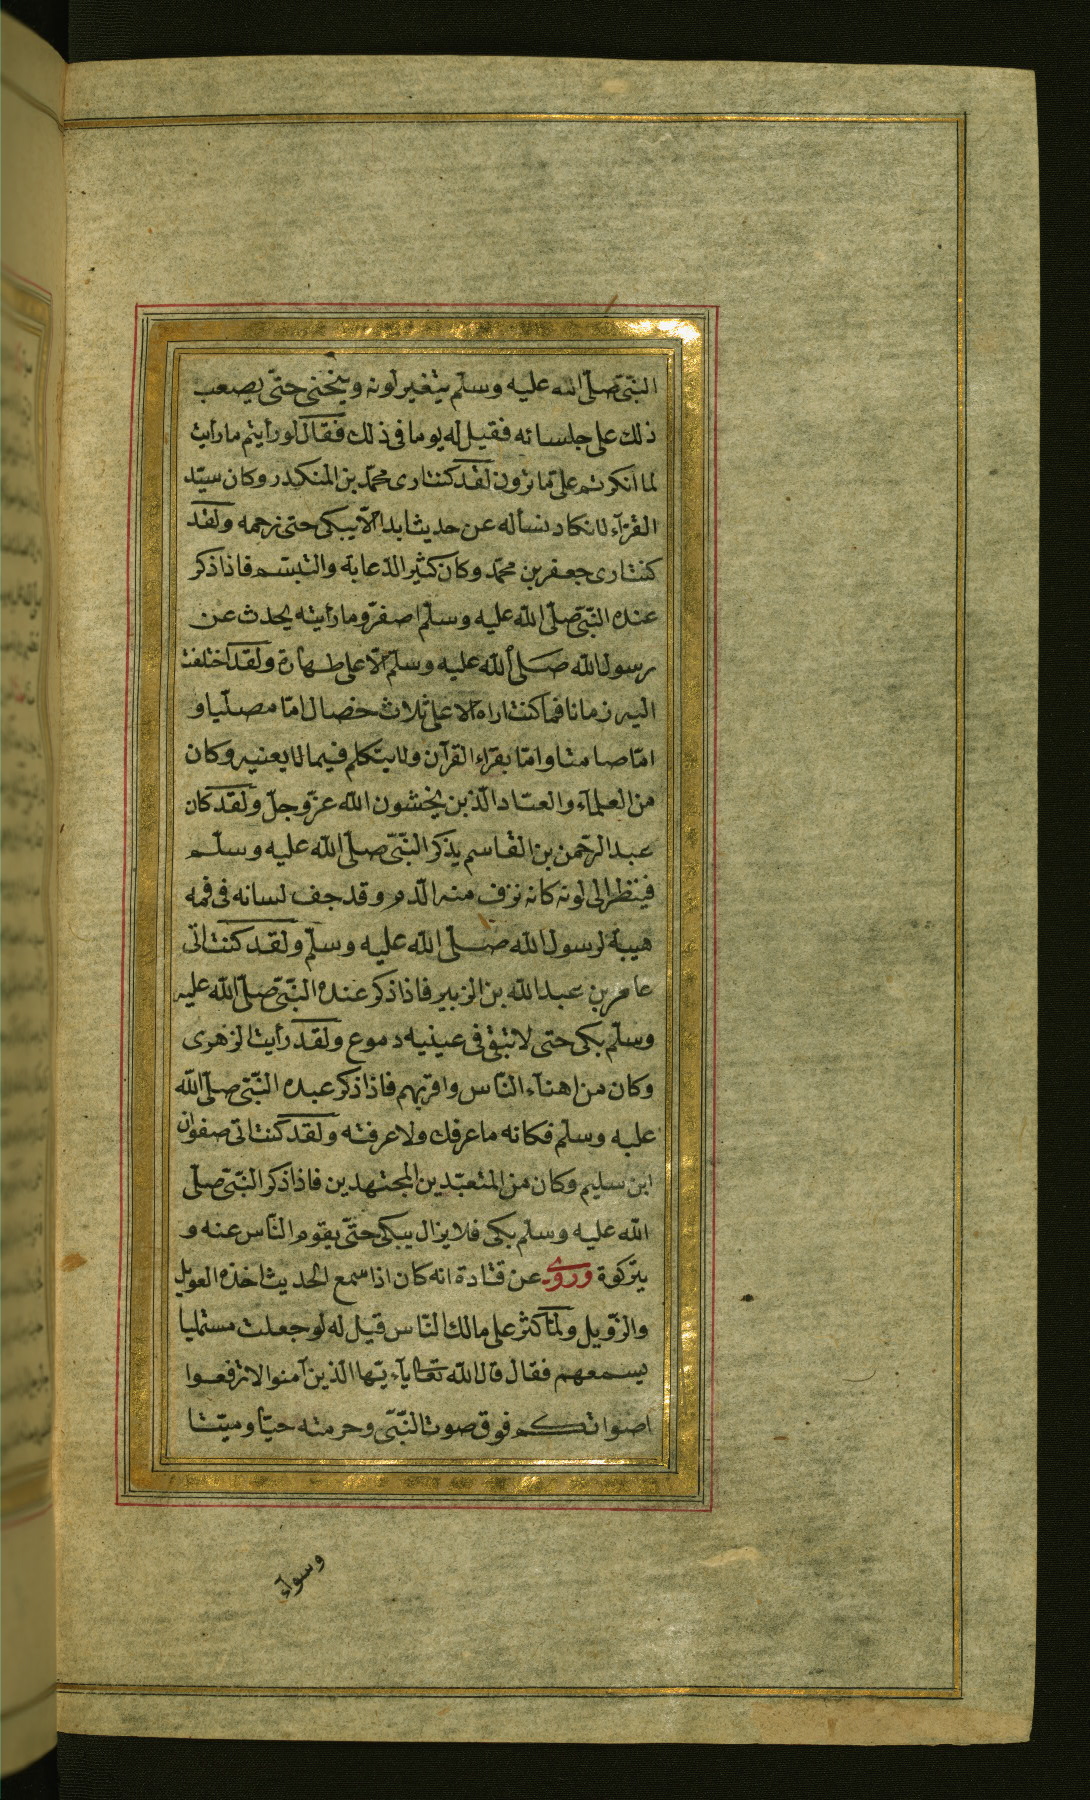 النّبّي صلّى الله عليه وسلّم يتغير لونه وينحنى حتّى يصعب
ذلك على جلسائه فقيل له يوما فى ذلك فقال لو رأيتم ما رأيت
لما انكرتم علىّ ما ترون لقد كنت ارى محمّد بن المنكدر وكان سيّد
القرّاء لا نكاد نسأله عن حديث ابدا الّا يبكى حتى نرحمه ولقد
كنت ارى جعفر بن محمّد وكان كثير الدّعابة والتبسّم فاذا ذكر
عنده النّبّي صلّى الله عليه وسلّم اصفرّ وما رأيته يحدث عن
رسول الله صلّى الله عليه وسلّم الّا على طهارة ولقد اختلفت
اليه زمانا فما كنت اراه الا على ثلاث خصال امّا مصلّيا و
امّا صامتا وامّا يقراء القرآن ولا يتكلم فيما لا يعنيه وكان
من العلمآء والعبّاد الّذين يخشون الله عزّ وجلّ ولقد كان
عبد الرحمن بن القاسم يذكر النّبّي صلّى الله عليه وسلّم
فينظر الى لونه كانه نزف منه الدّم وقد جف لسانه فى فمه
هيبة لرسول الله صلّى الله عليه وسلّم ولقد كنت اتى
عامر بن عبد الله بن الزبير فاذا ذكر عنده النّبّي صلّى الله عليه
وسلّم بكى حتى لا تبقى فى عينيه دموع ولقد رأيت الزهرى
وكان من اهنآء النّاس واقربهم فاذا ذكر عبده النّبّي صلّى الله
عليه وسلّم فكانه ما عرفك ولا عرفته ولقد كنت اتى صفوان
ابن سليم وكان من المتعبّدين المجتهدين فاذا ذكر النّبّي صلّى
الله عليه وسلّم بكى فلا يزال يبكى حتّى يقوم النّاس عنه و
يتركوة وروى عن قتادة انه كان اذا سمع الحديث اخذه العويل
والزّويل ولمّا كثر على مالك النّاس قيل له لو جعلت مستمليا
يسمعهم فقال قال الله تعالى يآءيّها الّذين آمنوا لا ترفعوا
اصواتكم فوق صوت النّبّي وحرمته حيّا وميّتا
وسوآء